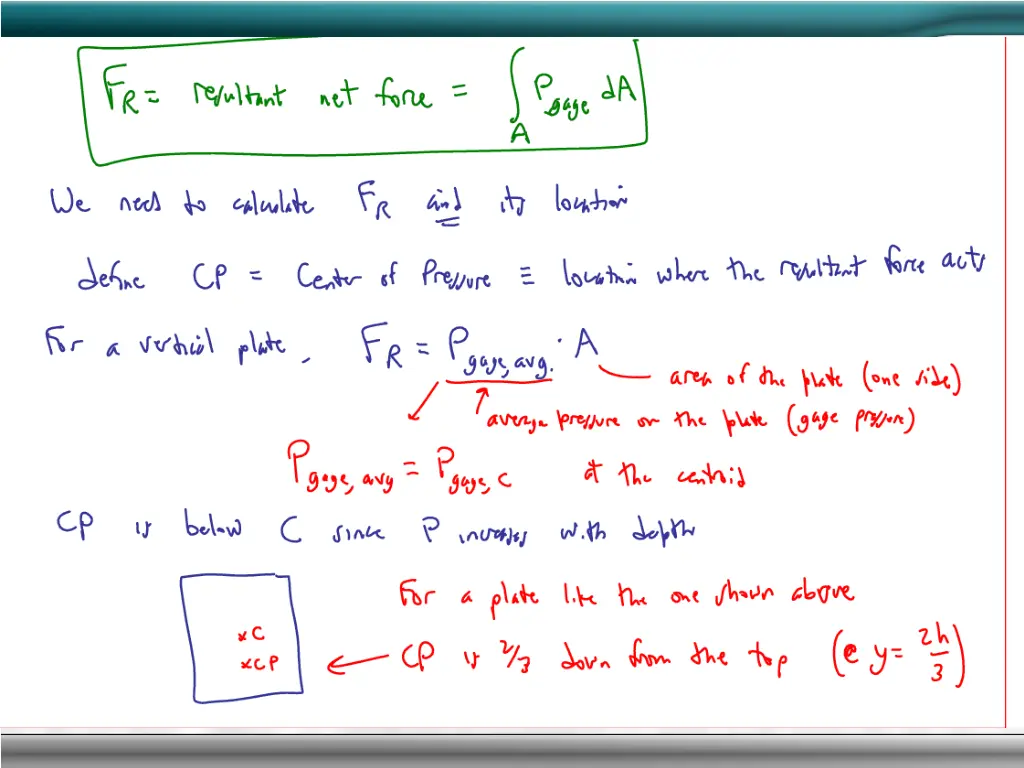 F_R = resultant net force = ∫_A P_gage dA
We need to calculate F_R and its location
define CP = Center of Pressure ≡ location where the resultant force acts
For a vertical plate, F_R = P_gage, avg. · A
area of the plate (one side)
average pressure on the plate (gage pressure)
P_gage, avg = P_gage, C at the centroid
CP is below C since P increases with depth
For a plate like the one shown above
×C
×CP
CP is 2/3 down from the top (@ y = 2h/3)